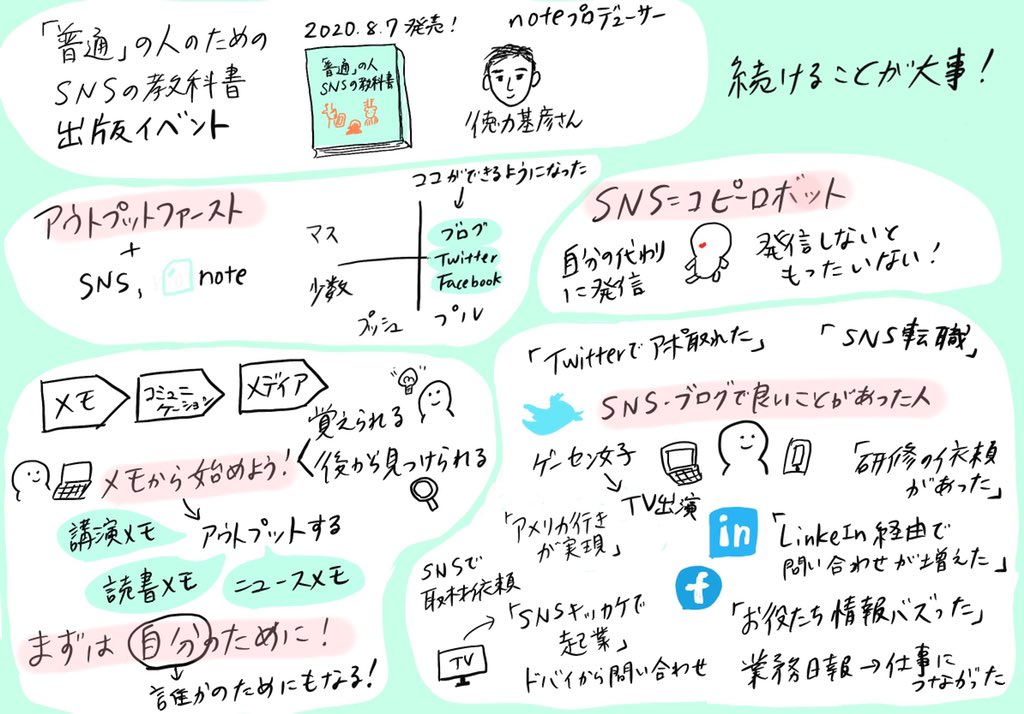 「普通」の人のための
SNSの教科書
出版イベント
2020.8.7 発売！
「普通」の人
SNSの教科書
noteプロデューサー
徳力基彦さん
続けることが大事！
アウトプットファースト
+
SNS、note
ココができるようになった
マス
少数
プッシュ
プル
ブログ
Twitter
Facebook
SNS=コピーロボット
自分の代わり
に発信
発信しないと
もったいない！
メモ
コミュニ
ケーション
メディア
メモから始めよう！
覚えられる
後から見つけられる
アウトプットする
講演メモ
読書メモ
ニュースメモ
まずは自分のために！
誰かのためにもなる！
「Twitterでアポ取れた」
「SNS転職」
SNS・ブログで良いことがあった人
ゲーセン女子
TV出演
「研修の依頼
があった」
「アメリカ行き
が実現」
in
「LinkeIn経由で
問い合わせが増えた」
SNSで
取材依頼
TV
f
「SNSキッカケで
起業」
ドバイから問い合わせ
「お役たち情報バズった」
業務日報→仕事に
つながった